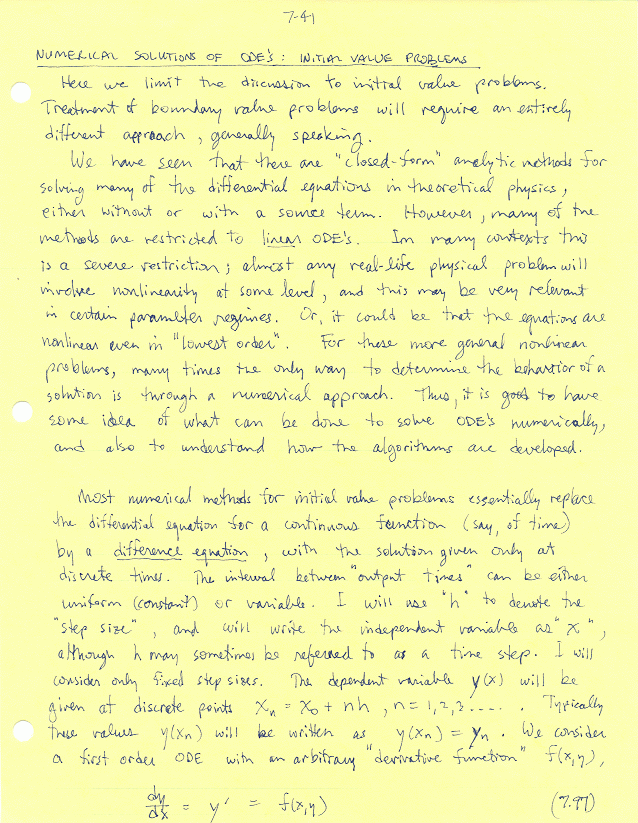 7-41
NUMERICAL SOLUTIONS OF ODE'S : INITIAL VALUE PROBLEMS
Here we limit the discussion to initial value problems.
Treatment of boundary value problems will require an entirely
different approach, generally speaking.
We have seen that there are "closed-form" analytic methods for
solving many of the differential equations in theoretical physics,
either without or with a source term. However, many of the
methods are restricted to linear ODE's. In many contexts this
is a severe restriction; almost any real-life physical problem will
involve nonlinearity at some level, and this may be very relevant
in certain parameter regimes. Or, it could be that the equations are
nonlinear even in "lowest order". For these more general nonlinear
problems, many times the only way to determine the behavior of a
solution is through a numerical approach. Thus, it is good to have
some idea of what can be done to solve ODE's numerically,
and also to understand how the algorithms are developed.
Most numerical methods for initial value problems essentially replace
the differential equation for a continuous function (say, of time)
by a difference equation, with the solution given only at
discrete times. The interval between "output times" can be either
uniform (constant) or variable. I will use "h" to denote the
"step size", and will write the independent variable as "x",
although h may sometimes be referred to as a time step. I will
consider only fixed step sizes. The dependent variable y(x) will be
given at discrete points xₙ = x₀ + nh, n = 1,2,3..... . Typically
these values y(xₙ) will be written as y(xₙ) = yₙ. We consider
a first order ODE with an arbitrary "derivative function" f(x,y),
dy/dx = y' = f(x,y) (7.97)